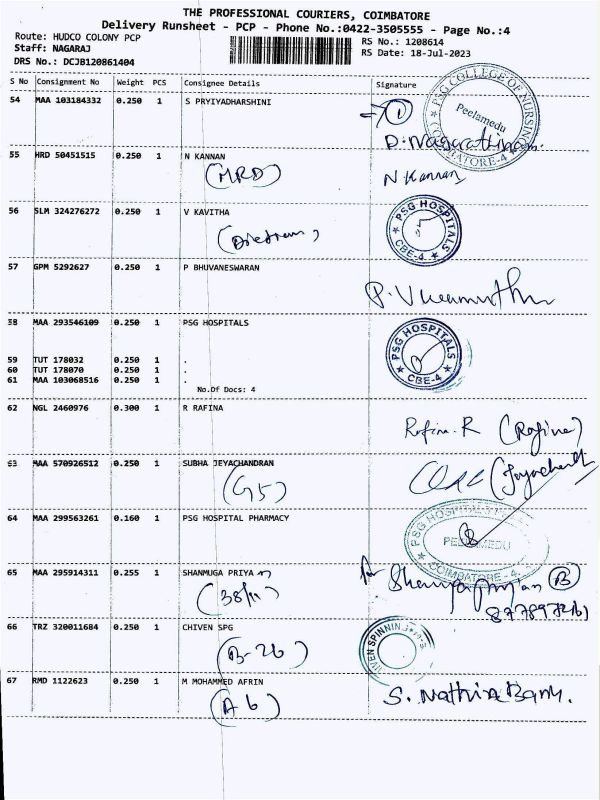 THE PROFESSIONAL COURIERS, COIMBATORE
Delivery Runsheet - PCP - Phone No.:0422-3505555 - Page No.:4
Route: HUDCO COLONY PCP
Staff: NAGARAJ
DRS No.: DCJB120861404
RS No.: 1208614
RS Date: 18-Jul-2023
S No Consignment No Weight PCS Consignee Details Signature
54 MAA 103184332 0.250 1 S PRYIYADHARSHINI
1
PSG COLLEGE OF NURSING
Peelamedu
COIMBATORE-4
D. Nagarathinam.
55 HRD 50451515 0.250 1 N KANNAN
(MRD) N Kannan
56 SLM 324276272 0.250 1 V KAVITHA
PSG HOSPITALS
CBE-4
57 GPM 5292627 0.250 1 P BHUVANESWARAN
58 MAA 293546109 0.250 1 PSG HOSPITALS
PSG HOSPITALS
CBE-4
59 TUT 178032 0.250 1 .
60 TUT 178070 0.250 1 .
61 MAA 103068516 0.250 1 .
No.Of Docs: 4
62 NGL 2460976 0.300 1 R RAFINA
Rafina.R (Rafina)
63 MAA 570926512 0.250 1 SUBHA JEYACHANDRAN
(G5)
64 MAA 299563261 0.160 1 PSG HOSPITAL PHARMACY
PSG HOSPITALS
PEELAMEDU
COIMBATORE-4.
65 MAA 295914311 0.255 1 SHANMUGA PRIYA
(38/11)
66 TRZ 320011684 0.250 1 CHIVEN SPG
(B-26)
67 RMD 1122623 0.250 1 M MOHAMMED AFRIN
(A6)